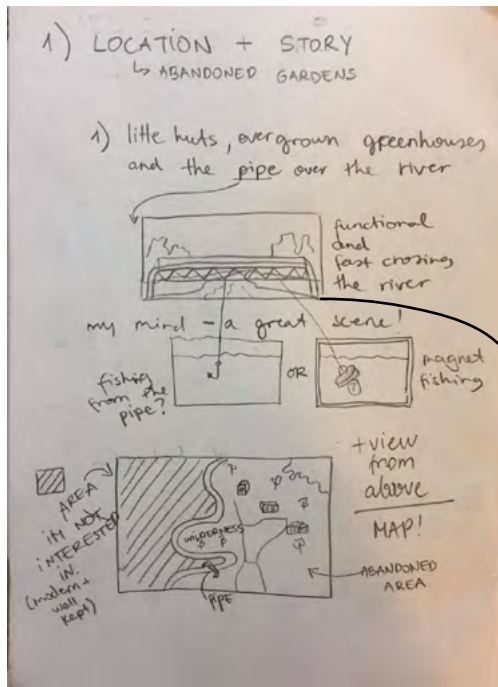 1) LOCATION + STORY
↳ ABANDONED GARDENS
1) little huts, overgrown greenhouses
and the pipe over the river
functional
and
fast crosing
the river
my mind - a great scene!
fishing
from the
pipe?
OR
magnet
fishing
AREA
IM NOT
INTERESTED
IN.
(modern +
well
kept)
WILDERNESS
PIPE
+ view
from
above
MAP!
ABANDONED
AREA